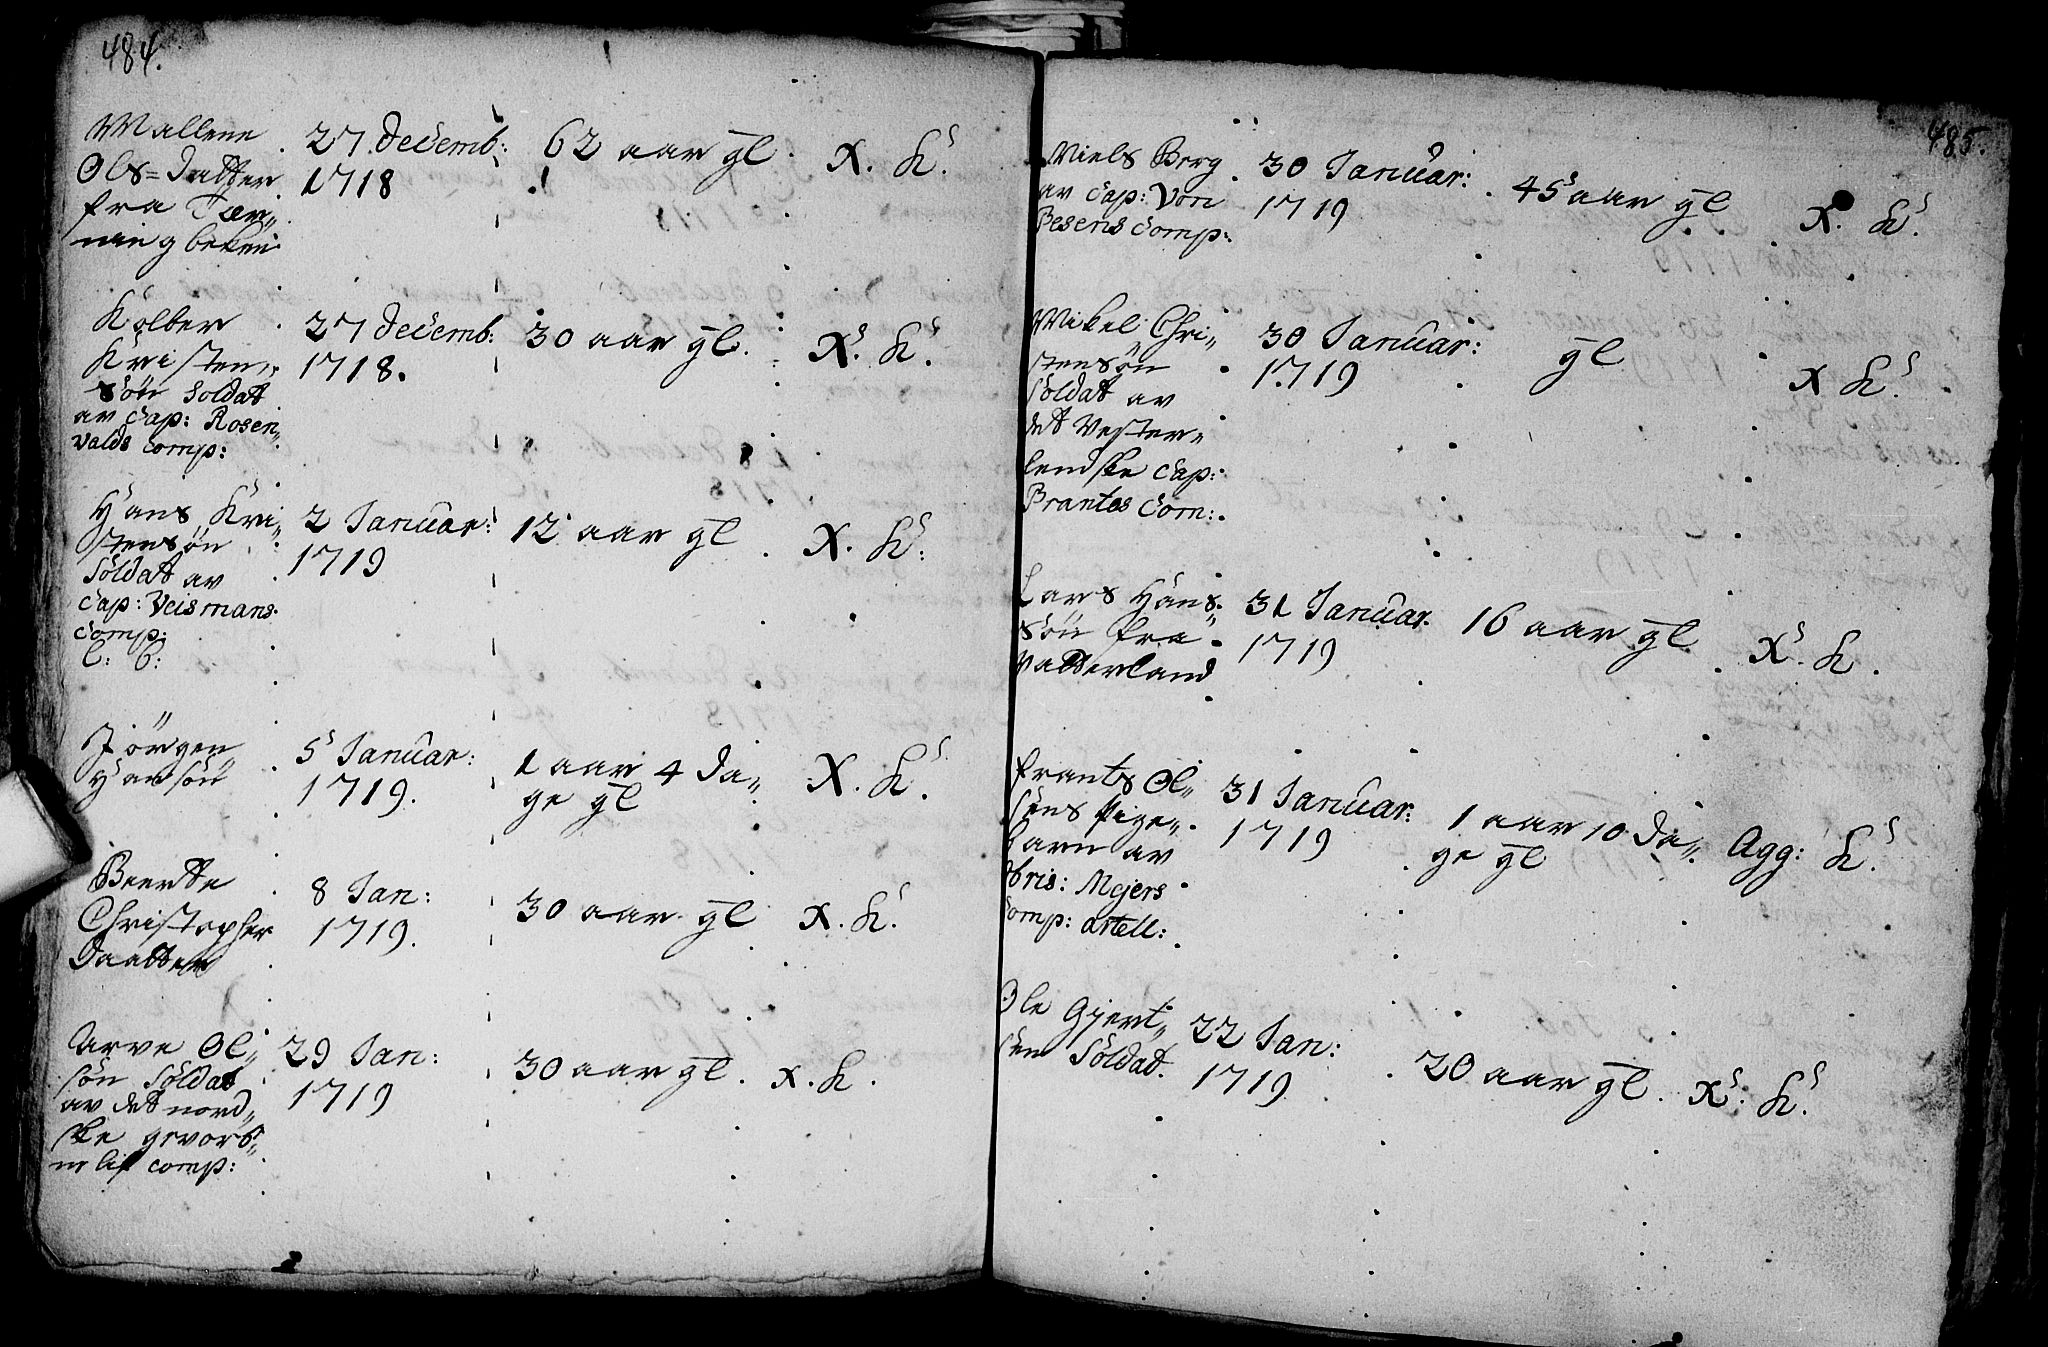 484.
Mallene
Ols=Datter
fra Tær„
ning beken
27 decemb:
1718
62 aar gl.
X. K.
Kolben
Kristen„
søn Soldat
av Cap: Rosen„
valds Comp:
27 decemb:
1718.
30 aar gl.
X. K.
Hans Kri„
stensøn
Soldat av
Cap: Veismans
Comp:
l: C:
2 Januar:
1719
12 aar gl
X. K:
Jörgen
Hansön
5 Januar:
1719.
1 aar 4 da„
ge gl
X. K.
Beertte
Christopher
Daatter
8 Jan:
1719.
30 aar gl
X. K.
Arve Ol„
søn Soldat
av det nord„
ske gevorb„
comp:
29 Jan:
1719
30 aar gl.
X. K.
485.
Niels Berg
av Cap: Von
Besens Comp:
30 Januar:
1719
45 aar gl
X. K.
Mikel Chri„
stensøn
Soldat av
det Vester„
lendske Cap:
Brantes Com:
30 Januar:
1719
gl
X K.
Lars Hans„
søn fra
Vatterland
31 Januar.
1719
16 aar gl
X. K.
frants Ol„
sens Pige„
barn av
Obris: Mejers
Comp: Artell:
31 Januar:
1719
1 aar 10 da„
ge gl
Agg: K.
Ole Gjert„
sen Soldat
22 Jan:
1719
20 aar gl.
X: K.